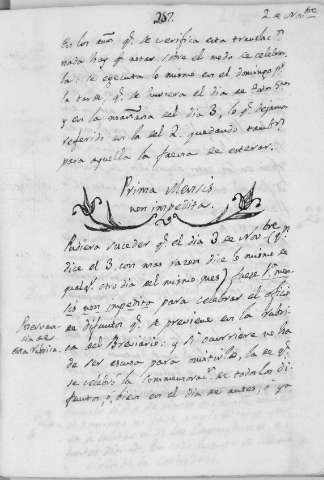 257.
2 de Nov.bre
En los años q.e se verifica esta traslac.n
nada hay q.e notar sobre el modo de celebrar
la: se executa lo mismo en el domingo p.r
la tarde, q.e se hiciera el dia de
y en la mañana del dia 3, lo q.e dejamos
referido en la del 2. quedando
para aquella la faena de esterar.
Prima Mensis
non impedita.
Pudiera suceder q.e el dia 3 de Nov.bre (q.n
dice el 3. con mas razon dice lo mismo de
qualq.r otro dia del mismo mes) fuese p.a men-
sis non impedito para celebrar el oficio
de difuntos q.e se previene en la rubri-
ca del Breviario: y si ocurriere no ha
de ser escusa para omitirla, la de q.e
se celebró la Conmemorac.n de todos los di-
funtos, ó bien en el dia de antes, ó
Observan-
cia de
esta Rubrica.